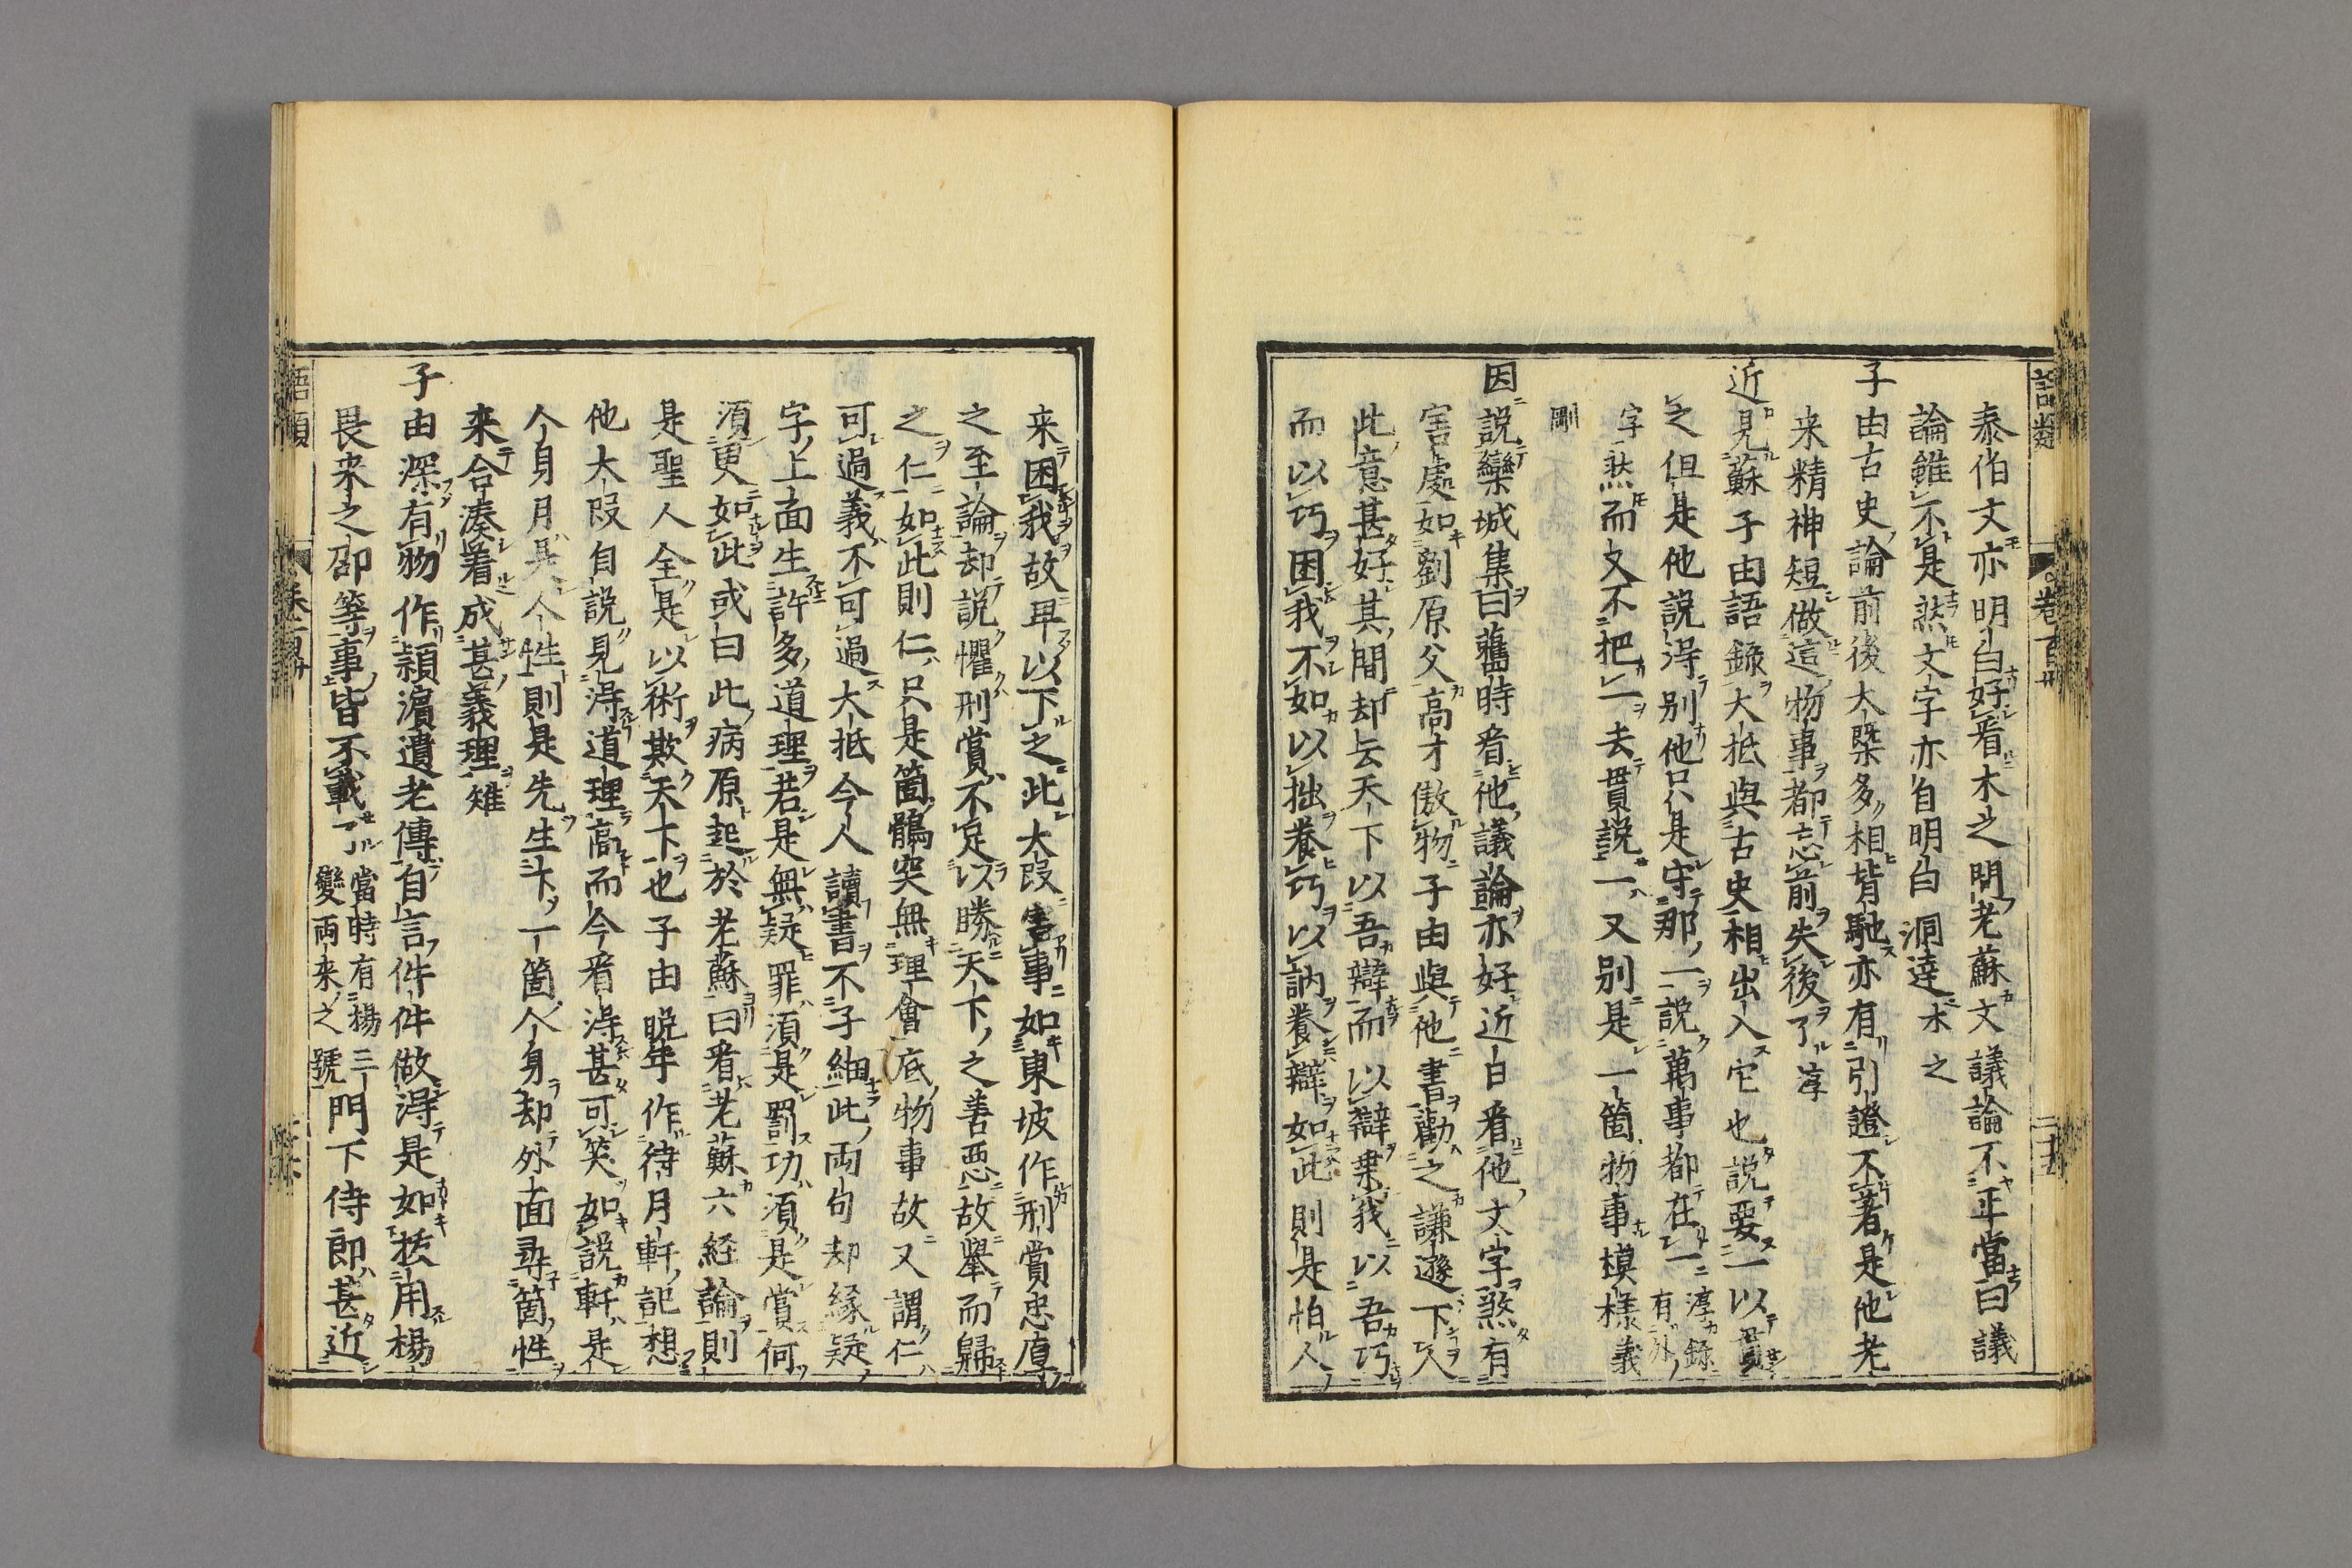 語類
卷百卅
二十五
泰伯文亦明白好看木之問老蘇文議論不正當曰議
論雖不是然文字亦自明白洞達木之
子由古史論前後大槩多相背馳亦有引證不著是他老
来精神短做這物事都忘前失後了淳
近見蘇子由語錄大抵與古史相出入它也說要一以貫
之但是他說得别他只是守那一說萬事都在一淳錄有外
字然而又不把一去貫說一又别是一箇物事模樣義
剛
因說欒城集曰舊時看他議論亦好近日看他文字煞有
害處如劉原父高才傲物子由與他書勸之謙遜下人
此意甚好其間却云天下以吾辯而以辯乗我以吾巧
而以巧困我不如以拙養巧以訥養辯如此則是怕人
来困我故耳以下之此大段害事如東坡作刑賞忠厚
之至論却說懼刑賞不足以勝天下之善惡故舉而歸
之仁如此則仁只是箇鶻突無理會底物事故又謂仁
可過義不可過大抵今人讀書不子細此兩句却緣疑
字上面生許多道理若是無疑罪須是罰功須是賞何
須更如此或曰此病原起於老蘇曰看老蘇六経論則
是聖人全是以術欺天下也子由晩年作待月軒記想
他大段自說見得道理高而今看得甚可笑如說軒是
人身月是人性則是先生下一箇人身却外面尋箇性
来合湊著成甚義理雉
子由深有物作頴濵遺老傳自言件件做得是如抜用楊
畏来之邵等事皆不載了當時有楊三變兩来之號門下侍郎甚近
語類